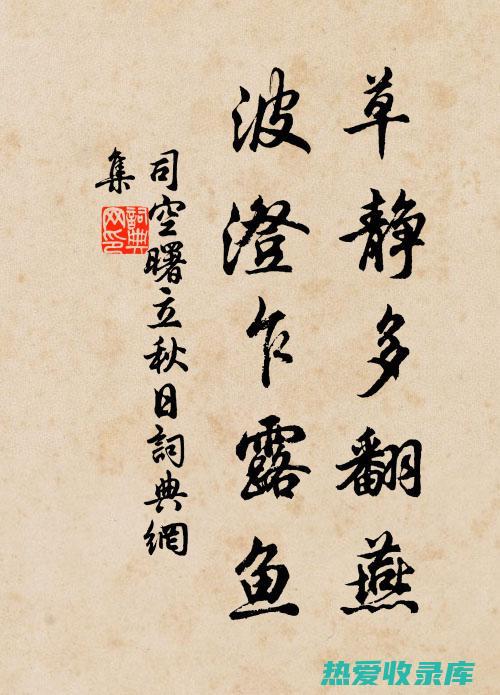 草静多翻燕
波澄乍露鱼
司空曙立秋日詞典網
集
詞典
网印
热爱收录库